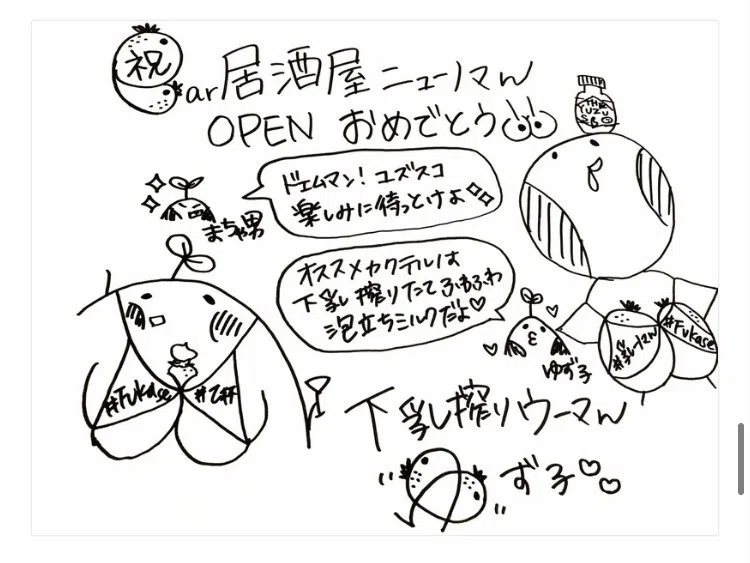 祝
ar居酒屋ニューノマん
OPEN おめでとう
THE
YUZU
ドエムマン！ユズスコ
楽しみに待っとけよ
まちゃ男
オススメカクテルは
下乳搾りたてふわふわ
泡立ちミルクだよ♡
ゆず子
#Fukase
#Fukase
下乳搾りウーマん
ゆず子♡♡